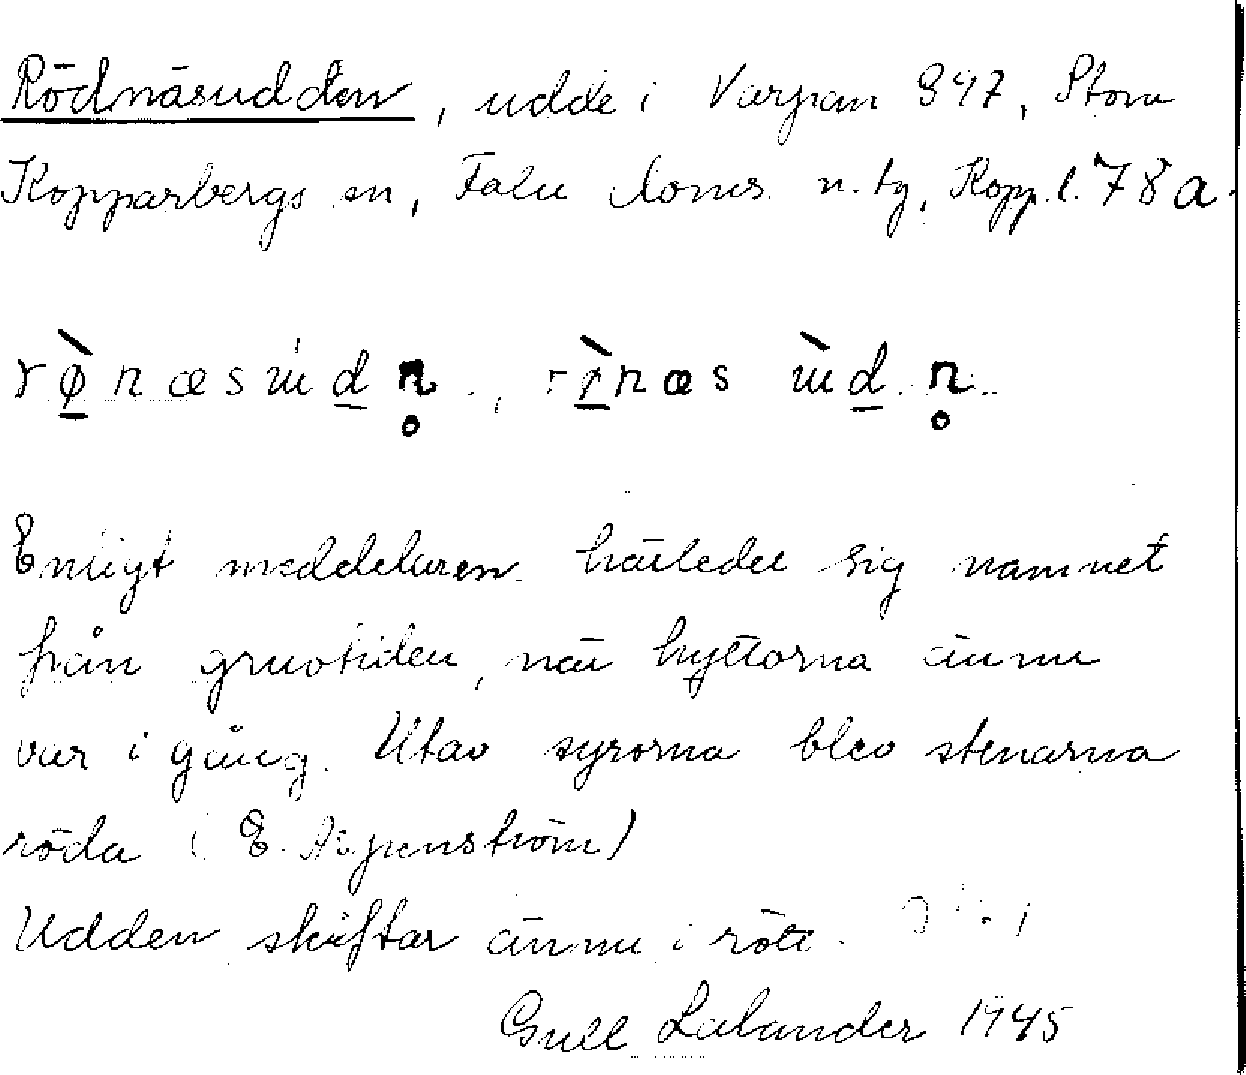 Rödnäsudden, udde i Varpan 847, Stora
Kopparbergs sn, Falu doms. n. tg, Kopp. l. 78 a.
Enligt meddelaren härleder sig namnet
från gruvtiden, när hyttorna ännu
var i gång. Utav syrorna blev stenarna
röda (E. Aspenström)
Udden skiftar ännu i rött.
Gull Lalander 1945